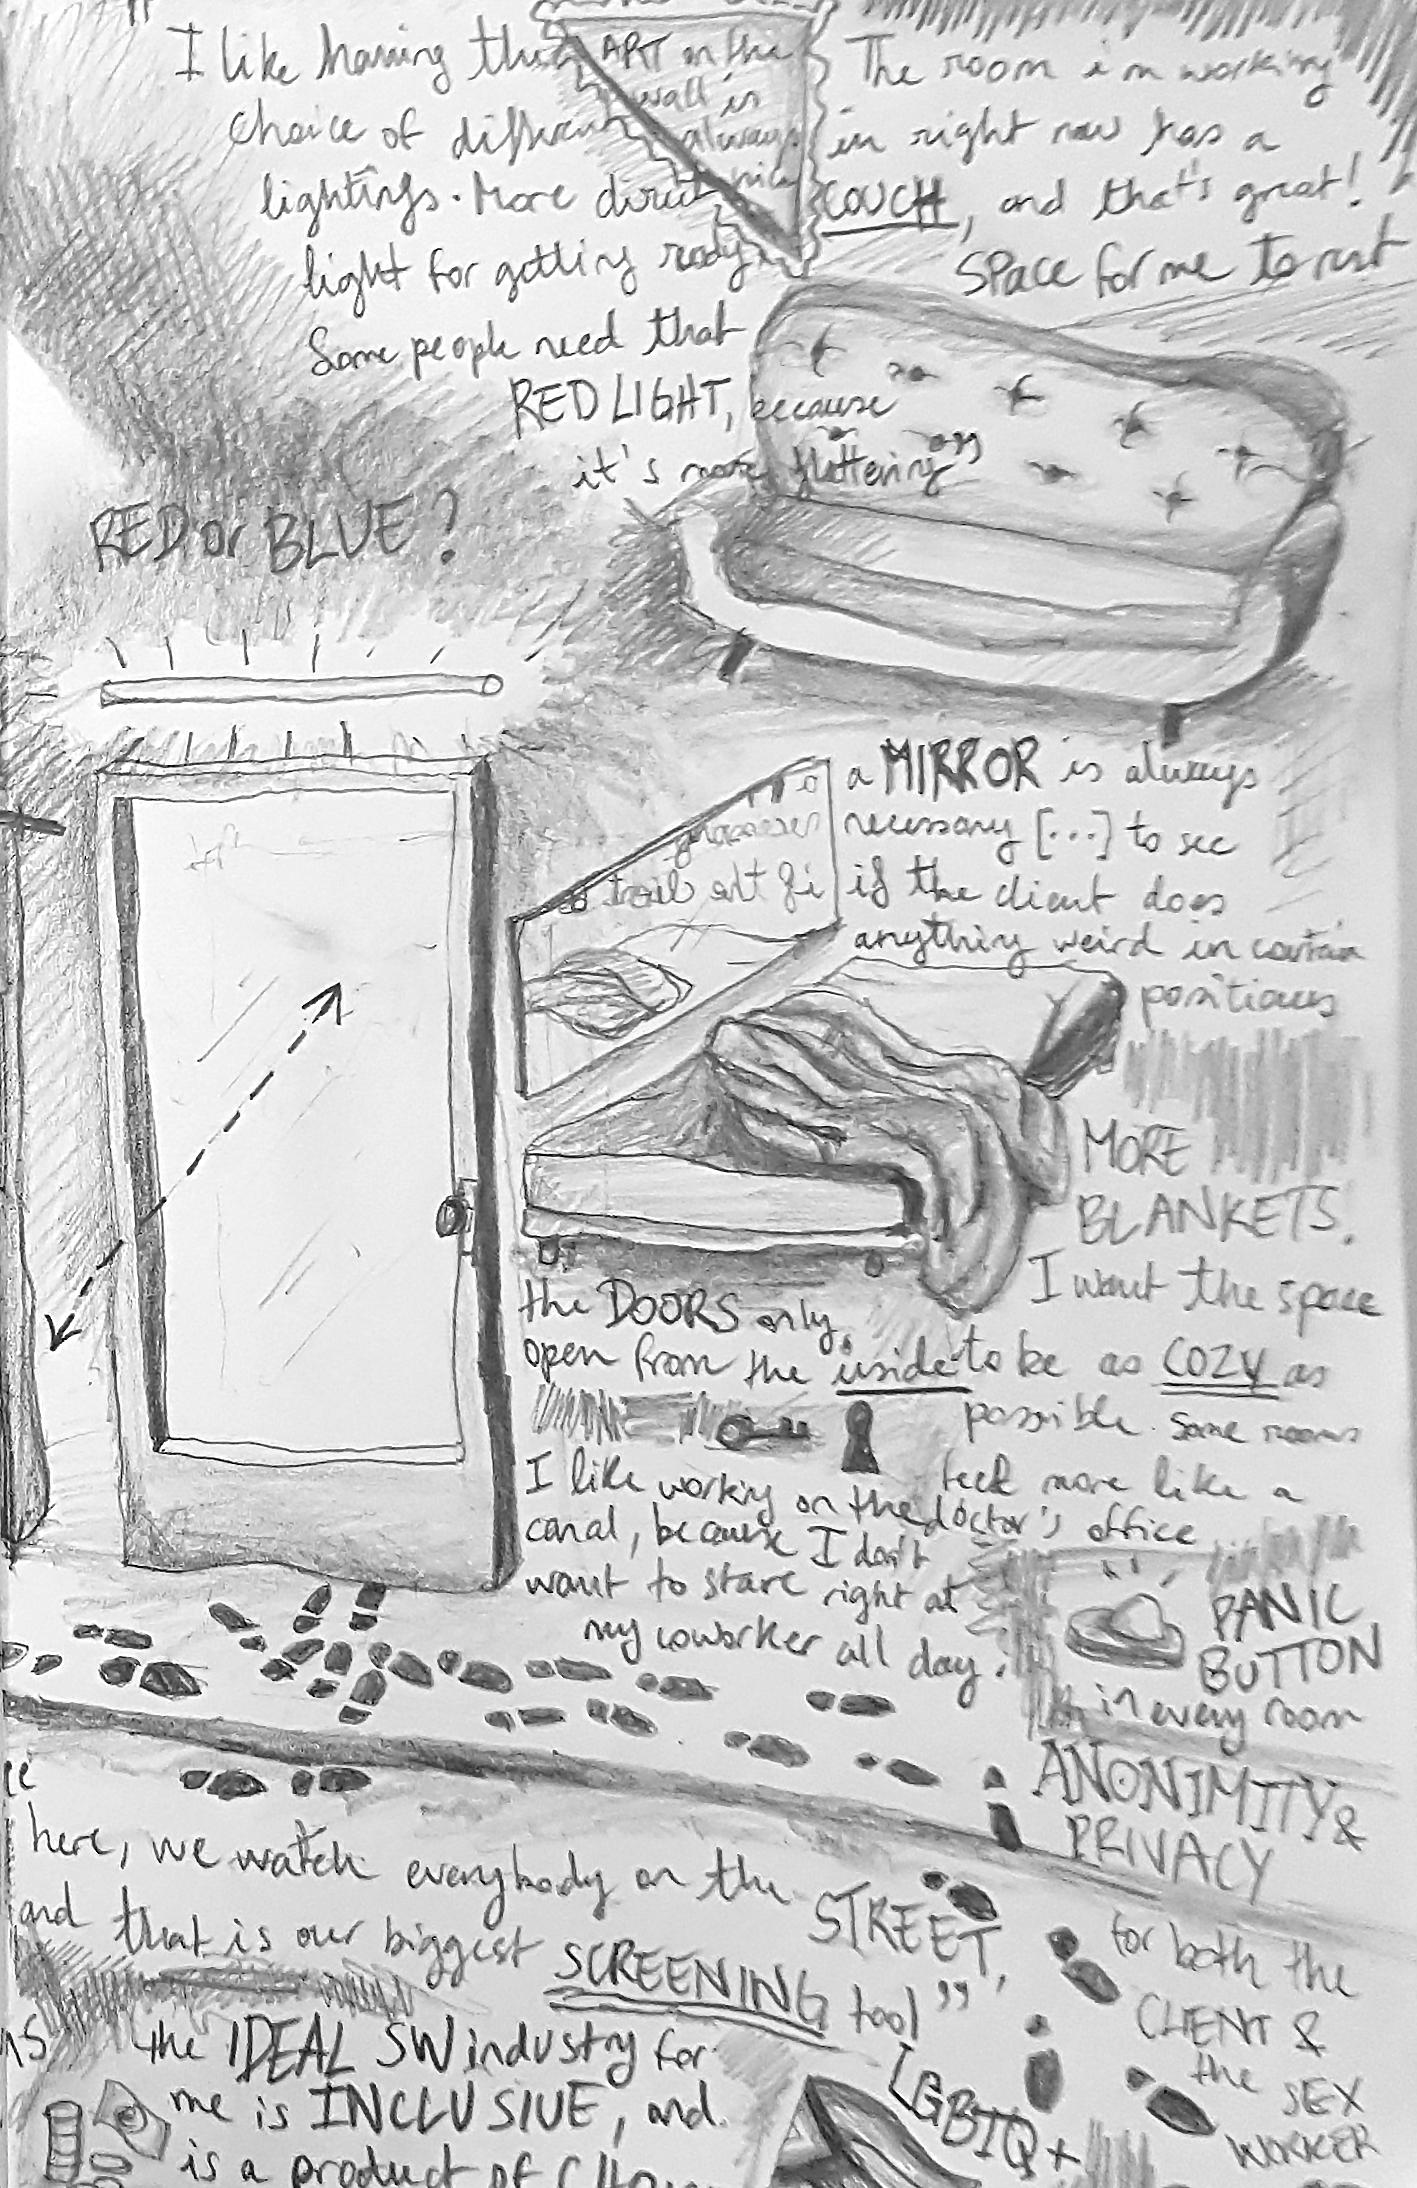 I like having the
choice of different
lightings. More direct
light for getting ready
Some people need that
RED LIGHT, because
it's more flattering"
ART on the
wall is
always
nice
The room i'm working
in right now has a
COUCH, and that's great!
SPace for me to rest
RED or BLUE?
a MIRROR is always
necessary [...] to see
if the client does
anything weird in certain
positions
necessary
if the client
MORE
BLANKETS.
I want the space
to be as COZY as
possible. Some rooms
feel more like a
doctor's office
the DOORS only
open from the inside
I like working on the
canal, because I don't
want to stare right at
my coworker all day.
PANIC
BUTTON
in every room
ANONIMITY &
PRIVACY
for both the
CLIENT &
the SEX
WORKER
here, we watch everybody on the STREET,
and that is our biggest SCREENING tool"
the IDEAL SW industry for
me is INCLUSIVE, and
is a product of
LGBTQ+